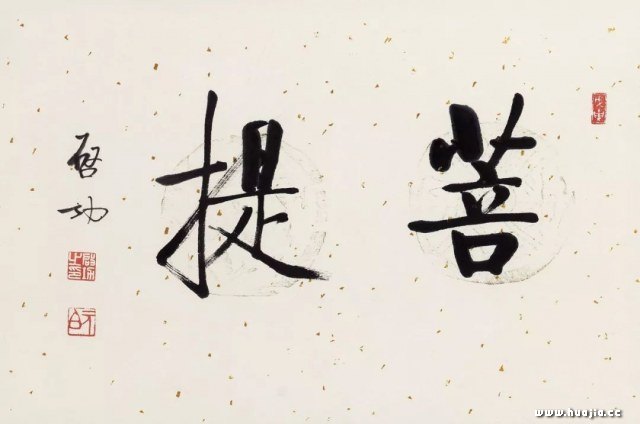 菩提
啓功
www.huajia.cc